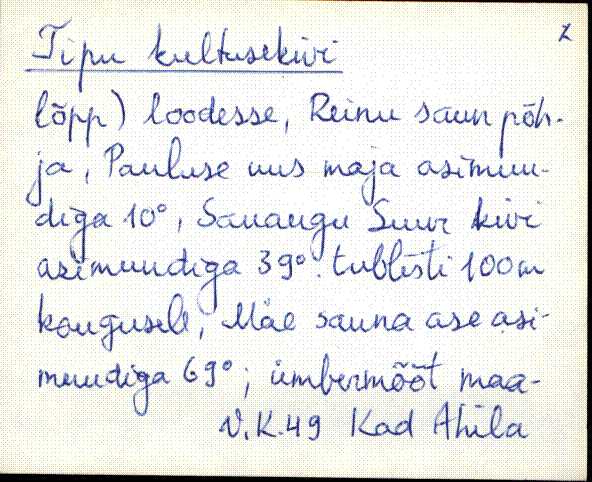 Tipu kultusekivi 2
lõpp) loodesse, Reinu saun põh-
ja, Pauluse uus maja asimuu-
diga 10°, Sauaugu Suur kivi
asimuudiga 39° tublisti 100m
kaugusele, Mäe sauna ase asi-
muudiga 69°; ümbermõõt maa-
V.K.49 Kad Ahila